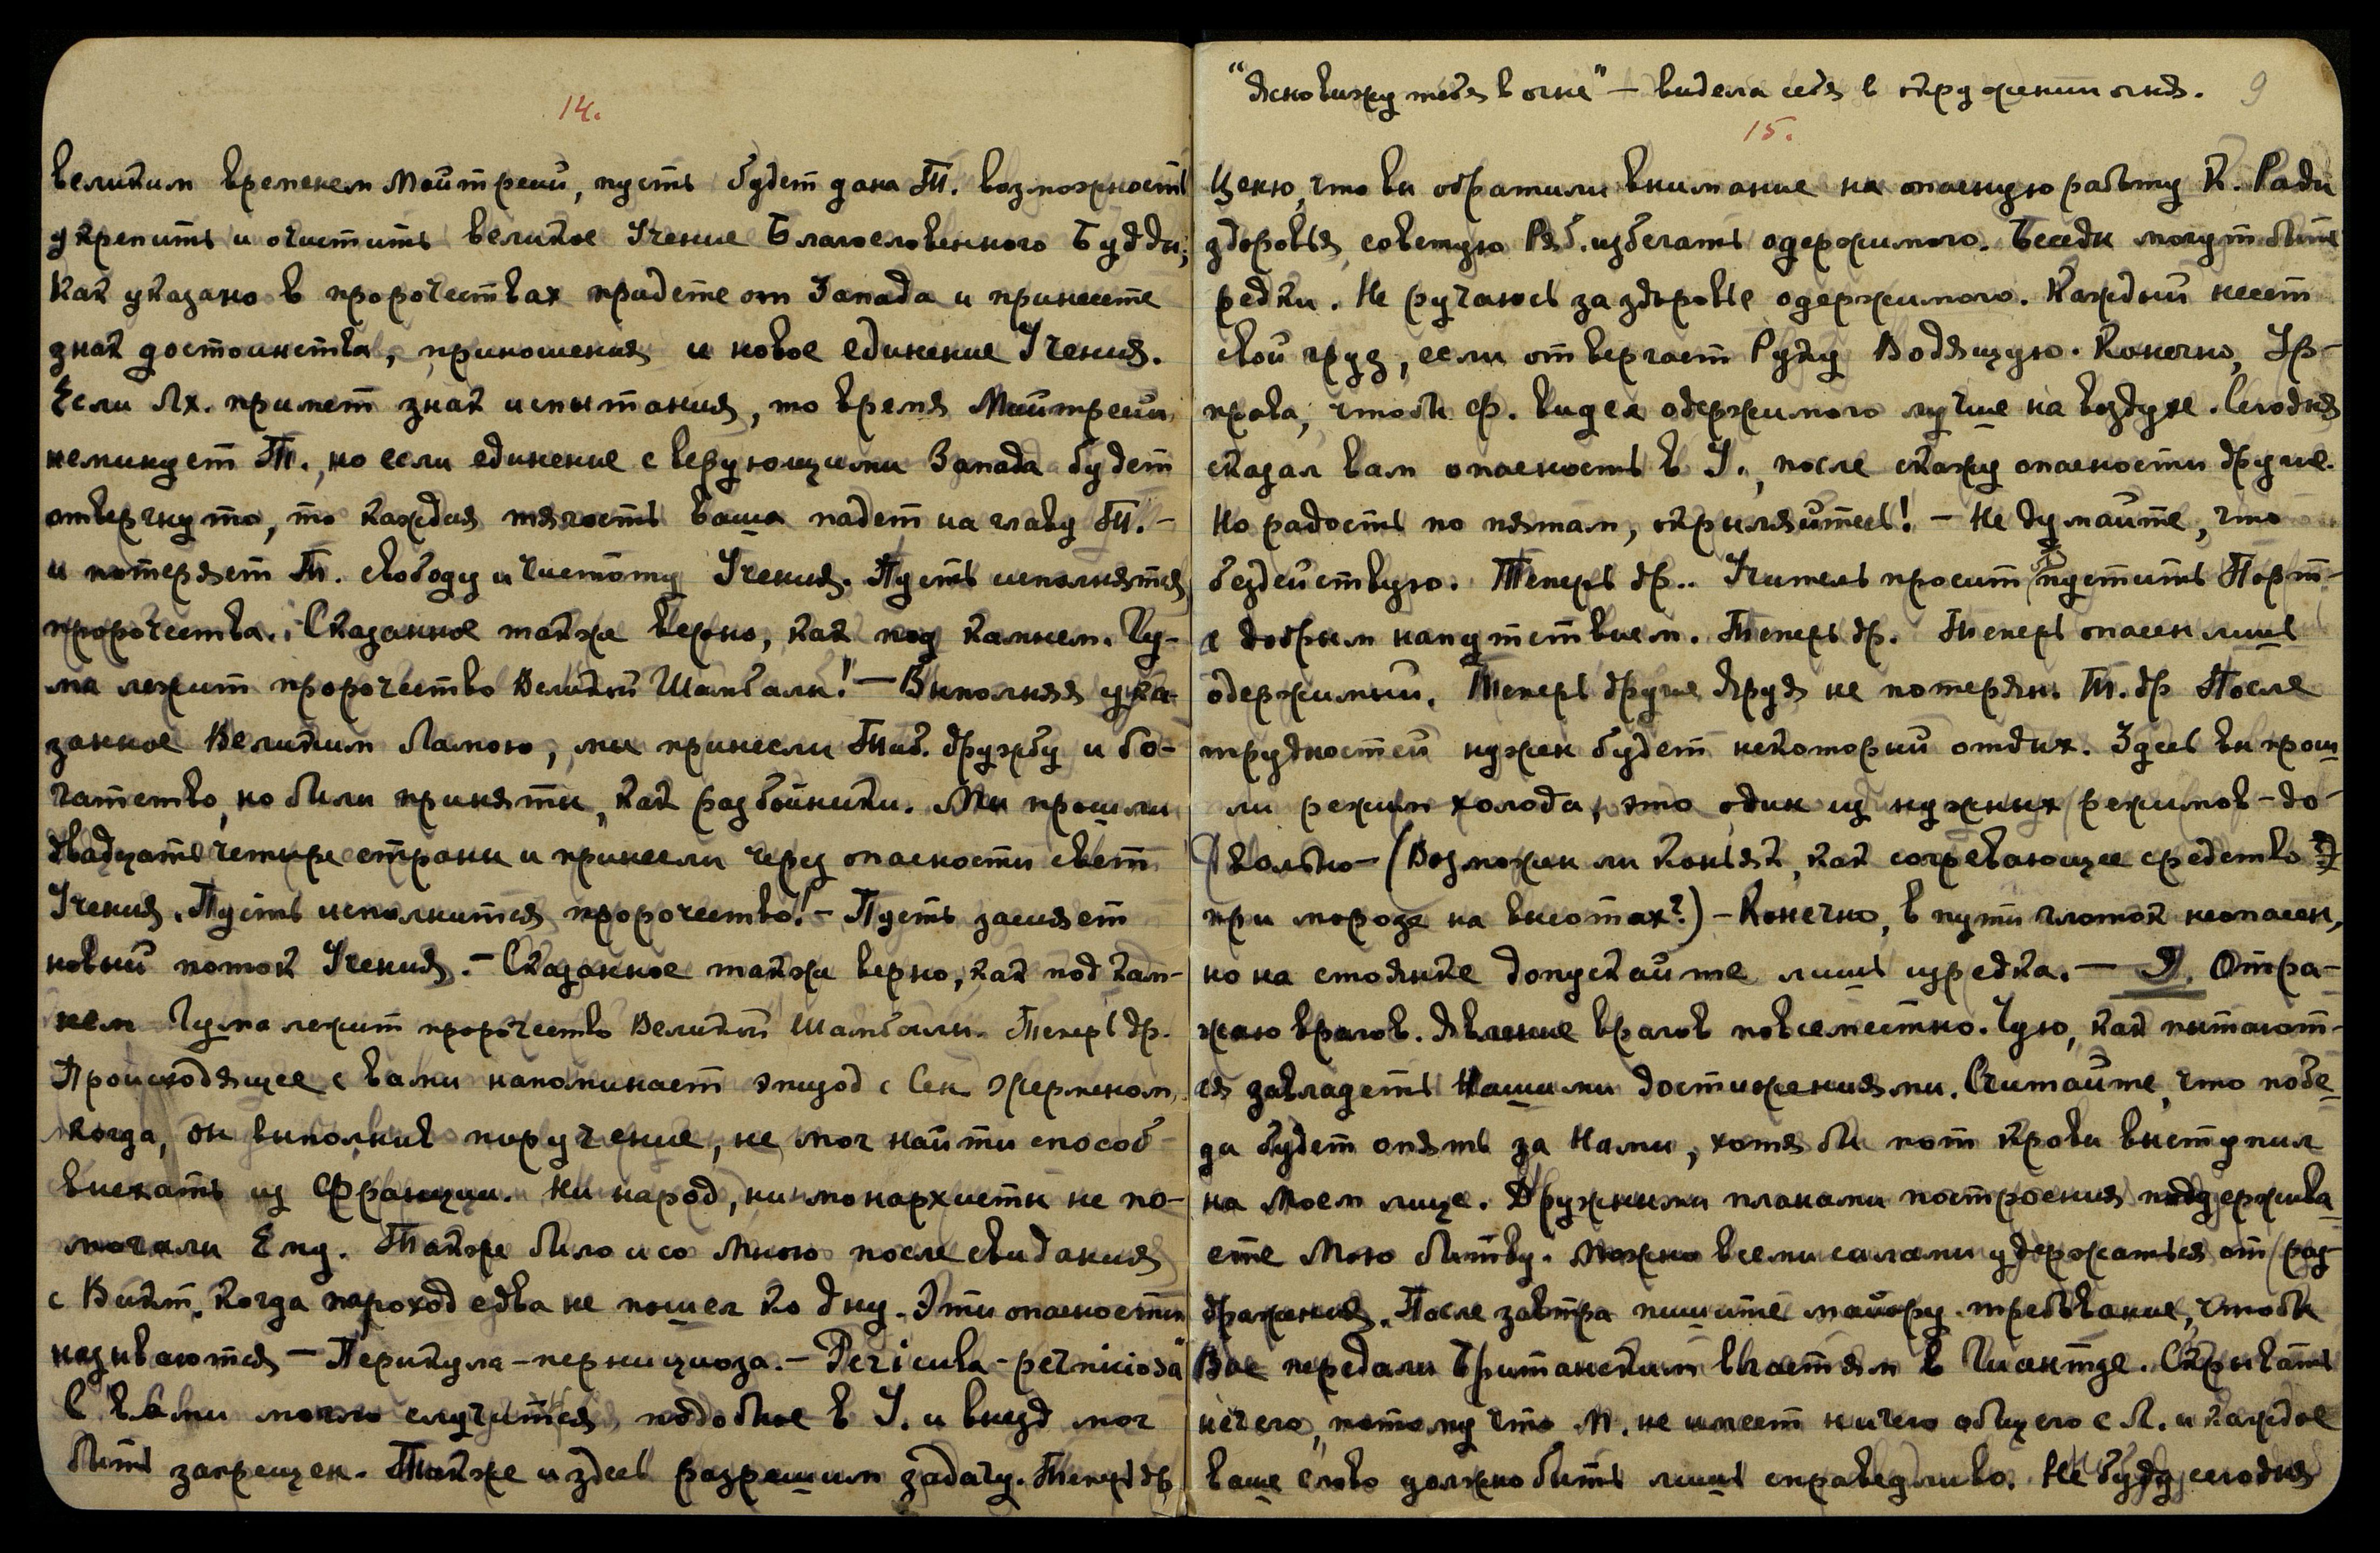 14.
великим временем Майтрейи, пусть будет дана Т. возможность
укрепить и очистить великое Учение Благословенного Будды;
Как указано в пророчествах придете от Запада и принесете
знак достоинства, приношения и новое единение Учения.
Если Лх. примет знак испытания, то время Майтрейи
неминует Т., но если единение с верующими Запада будет
отвергнуто, то каждая тягость ваша падет на главу Т. -
и потеряет Т. свободу и чистоту Учения. Пусть исполнятся
пророчества. Сказанное также верно, как под камнем Гу-
ма лежит пророчество Великой Шамбалы! — Выполняя ука-
занное Великим Ламою, мы принесли Тиб. дружбу и бо-
гатство, но были приняты, как разбойники. Мы прошли
двадцать четыре страны и принесли через опасности свет
Учения. Пусть исполнится пророчество! - Пусть засияет
новый поток Учения. - Сказанное также верно, как под кам-
нем Гума лежит пророчество Великой Шамбалы. Теперь др.
Происходящее с вами напоминает эпизод с Сен Жерменом,
когда, он выполнив поручение, не мог найти способ
выехать из Франции. Ни народ, ни монархисты не по-
могали Ему. Также было и со Мною после свидания
с Викт., когда пароход едва не пошел ко дну. Эти опасности
называются — Перикула - перницioза. - Pericula - perniciosa"
С вами могло случиться подобное в У. и выезд мог
быть запрещен. Также и здесь разрешим задачу. Теперь др.
"Ясно вижу тебя в огне" — видела себя в окружении огня.
9
15.
Ценю, что вы обратили внимание на опасную работу К. Ради
здоровья, советую Ряб. избегать одержимого. Беседы могут быть
редки. Не ручаюсь за здоровье одержимого. Каждый несет
свой груз, если отвергает Руку Водящую. Конечно, Ур-
права, чтобы Ф. видел одержимого лучше на воздухе. Сегодня
сказал вам опасность в У., после скажу опасности другие.
Но радость по пятам, окриляйтесь! - Не думайте, что
бездействую. Теперь др.. Учитель просит пустить Порт-
с добрым напутствием. Теперь др. Теперь опасен лишь
одержимый. Теперь другие Яруя не потерян. Т. др После
трудностей нужен будет некоторый отдых. Здесь вы прош-
ли режим холода, это один из нужных режимов - до-
вольно - (Возможен ли коньяк, как согревающее средство
при морозе на высотах?) - Конечно, в пути глоток неопасен,
но на стоянке допускайте лишь изредка. — Я. Отра-
жаю врагов. Явление врагов повсеместно. Чую, как пытают-
ся завладеть Нашими достижениями. Считайте, что побе-
да будет опять за Нами, хотя бы пот крови выступил
на Моем лице. Дружными планами построения поддержива-
ете Мою битву. Можно всеми силами удержаться от раз-
дражения. После завтра пишите майору требование, чтобы
Вас передали Британским властям в Гиантзе. Скрывать
нечего, потому что М. не имеет ничего общего с Л. и каждое
ваше слово должно быть лишь справедливо. Не буду сегодня